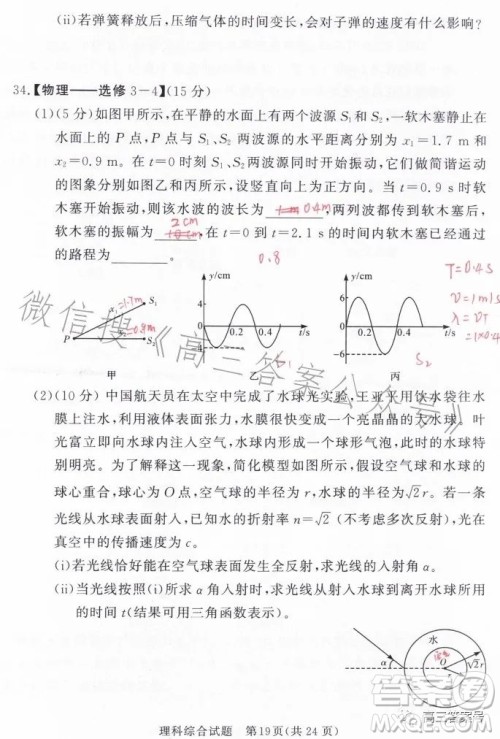 (ii)若弹簧释放后,压缩气体的时间变长,会对子弹的速度有什么影响?
34.【物理——选修3-4】(15分)
(1)(5分)如图甲所示,在平静的水面上有两个波源S₁和S₂,一软木塞静止在
水面上的P点,P点与S₁、S₂两波源的水平距离分别为x₁=1.7 m和
x₂=0.9 m。在t=0时刻S₁、S₂两波源同时开始振动,它们做简谐运动
的图象分别如图乙和丙所示,设竖直向上为正方向。当t=0.9 s时软
木塞开始振动,则该水波的波长为 0.4m ,两列波都传到软木塞后,
2cm
软木塞的振幅为 ,在t=0到t=2.1 s的时间内软木塞已经通过
的路程为 。
0.8
T=0.4s
v=1m/s
λ=vT
=1×0.4
x₁=1.7m
S₁
0.8m
S₂
P
甲
y/cm
4
0.2
0.4
t/s
-4
乙
S₁
y/cm
6
0.2
0.4
t/s
-6
丙
S₂
(2)(10分)中国航天员在太空中完成了水球光实验,王亚平用饮水袋往水
膜上注水,利用液体表面张力,水膜很快变成一个亮晶晶的大水球。叶
光富立即向水球内注入空气,水球内形成一个球形气泡,此时的水球特
别明亮。为了解释这一现象,简化模型如图所示,假设空气球与水球的
球心重合,球心为O点,空气球的半径为r,水球的半径为√2r。若一条
光线从水球表面射入,已知水的折射率n=√2(不考虑多次反射),光在
真空中的传播速度为c。
(i)若光线恰好能在空气球表面发生全反射,求光线的入射角α。
(ii)当光线按照(i)所求α角入射时,求光线从射入水球到离开水球所用
的时间t(结果可用三角函数表示)。
水
α
O
r
√2r
理科综合试题 第19页(共24页)
微信搜《高三答案公众号》
高三答案号